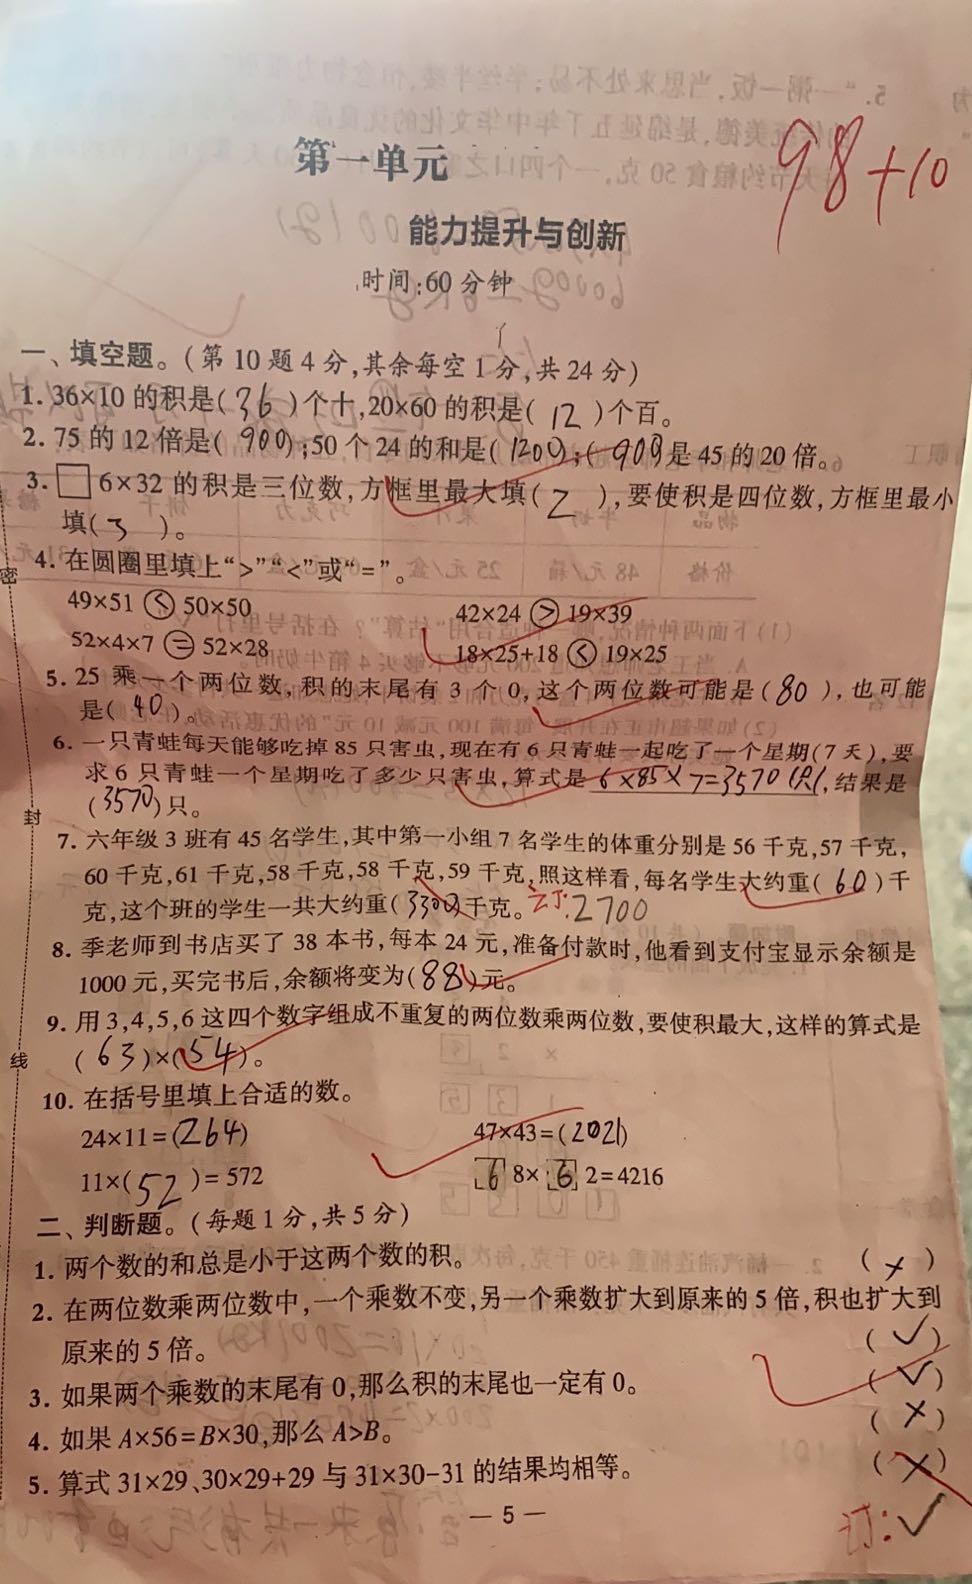 第一单元
98+10
能力提升与创新
时间:60分钟
一、填空题。(第10题4分,其余每空1分,共24分)
1. 36×10的积是(36)个十,20×60的积是(12)个百。
2. 75的12倍是(900);50个24的和是(1200);(900)是45的20倍。
3. □6×32的积是三位数,方框里最大填(2),要使积是四位数,方框里最小
填(3)。
4. 在圆圈里填上“>”“<”或“=”。
49×51<50×50 42×24>19×39
52×4×7=52×28 18×25+18<19×25
5. 25乘一个两位数,积的末尾有3个0,这个两位数可能是(80),也可能
是(40)。
6. 一只青蛙每天能够吃掉85只害虫,现在有6只青蛙一起吃了一个星期(7天),要
求6只青蛙一个星期吃了多少只害虫,算式是6×85×7=3570(只),结果是
(3570)只。
7. 六年级3班有45名学生,其中第一小组7名学生的体重分别是56千克,57千克,
60千克,61千克,58千克,58千克,59千克,照这样看,每名学生大约重(60)千
克,这个班的学生一共大约重(3300)千克。订:2700
8. 季老师到书店买了38本书,每本24元,准备付款时,他看到支付宝显示余额是
1000元,买完书后,余额将变为(88)元。
9. 用3,4,5,6这四个数字组成不重复的两位数乘两位数,要使积最大,这样的算式是
(63)×(54)。
10. 在括号里填上合适的数。
24×11=(264) 47×43=(2021)
11×(52)=572 68×62=4216
二、判断题。(每题1分,共5分)
1. 两个数的和总是小于这两个数的积。 (×)
2. 在两位数乘两位数中,一个乘数不变,另一个乘数扩大到原来的5倍,积也扩大到
原来的5倍。 (✓)
3. 如果两个乘数的末尾有0,那么积的末尾也一定有0。 (✓)
4. 如果A×56=B×30,那么A>B。 (×)
5. 算式31×29、30×29+29与31×30-31的结果均相等。 (×)
订:✓
— 5 —
密
封
线